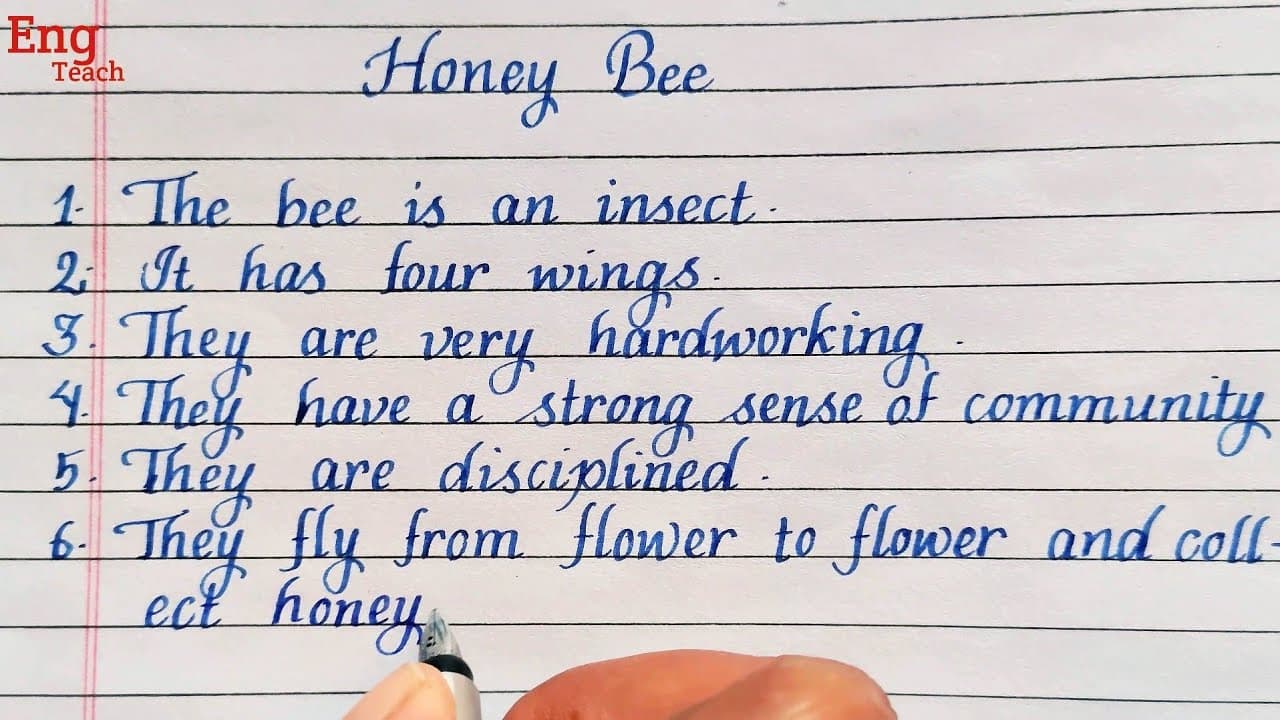 Eng
Teach
Honey Bee
1. The bee is an insect.
2. It has four wings.
3. They are very hardworking.
4. They have a strong sense of community
5. They are disciplined.
6. They fly from flower to flower and coll-
ect honey